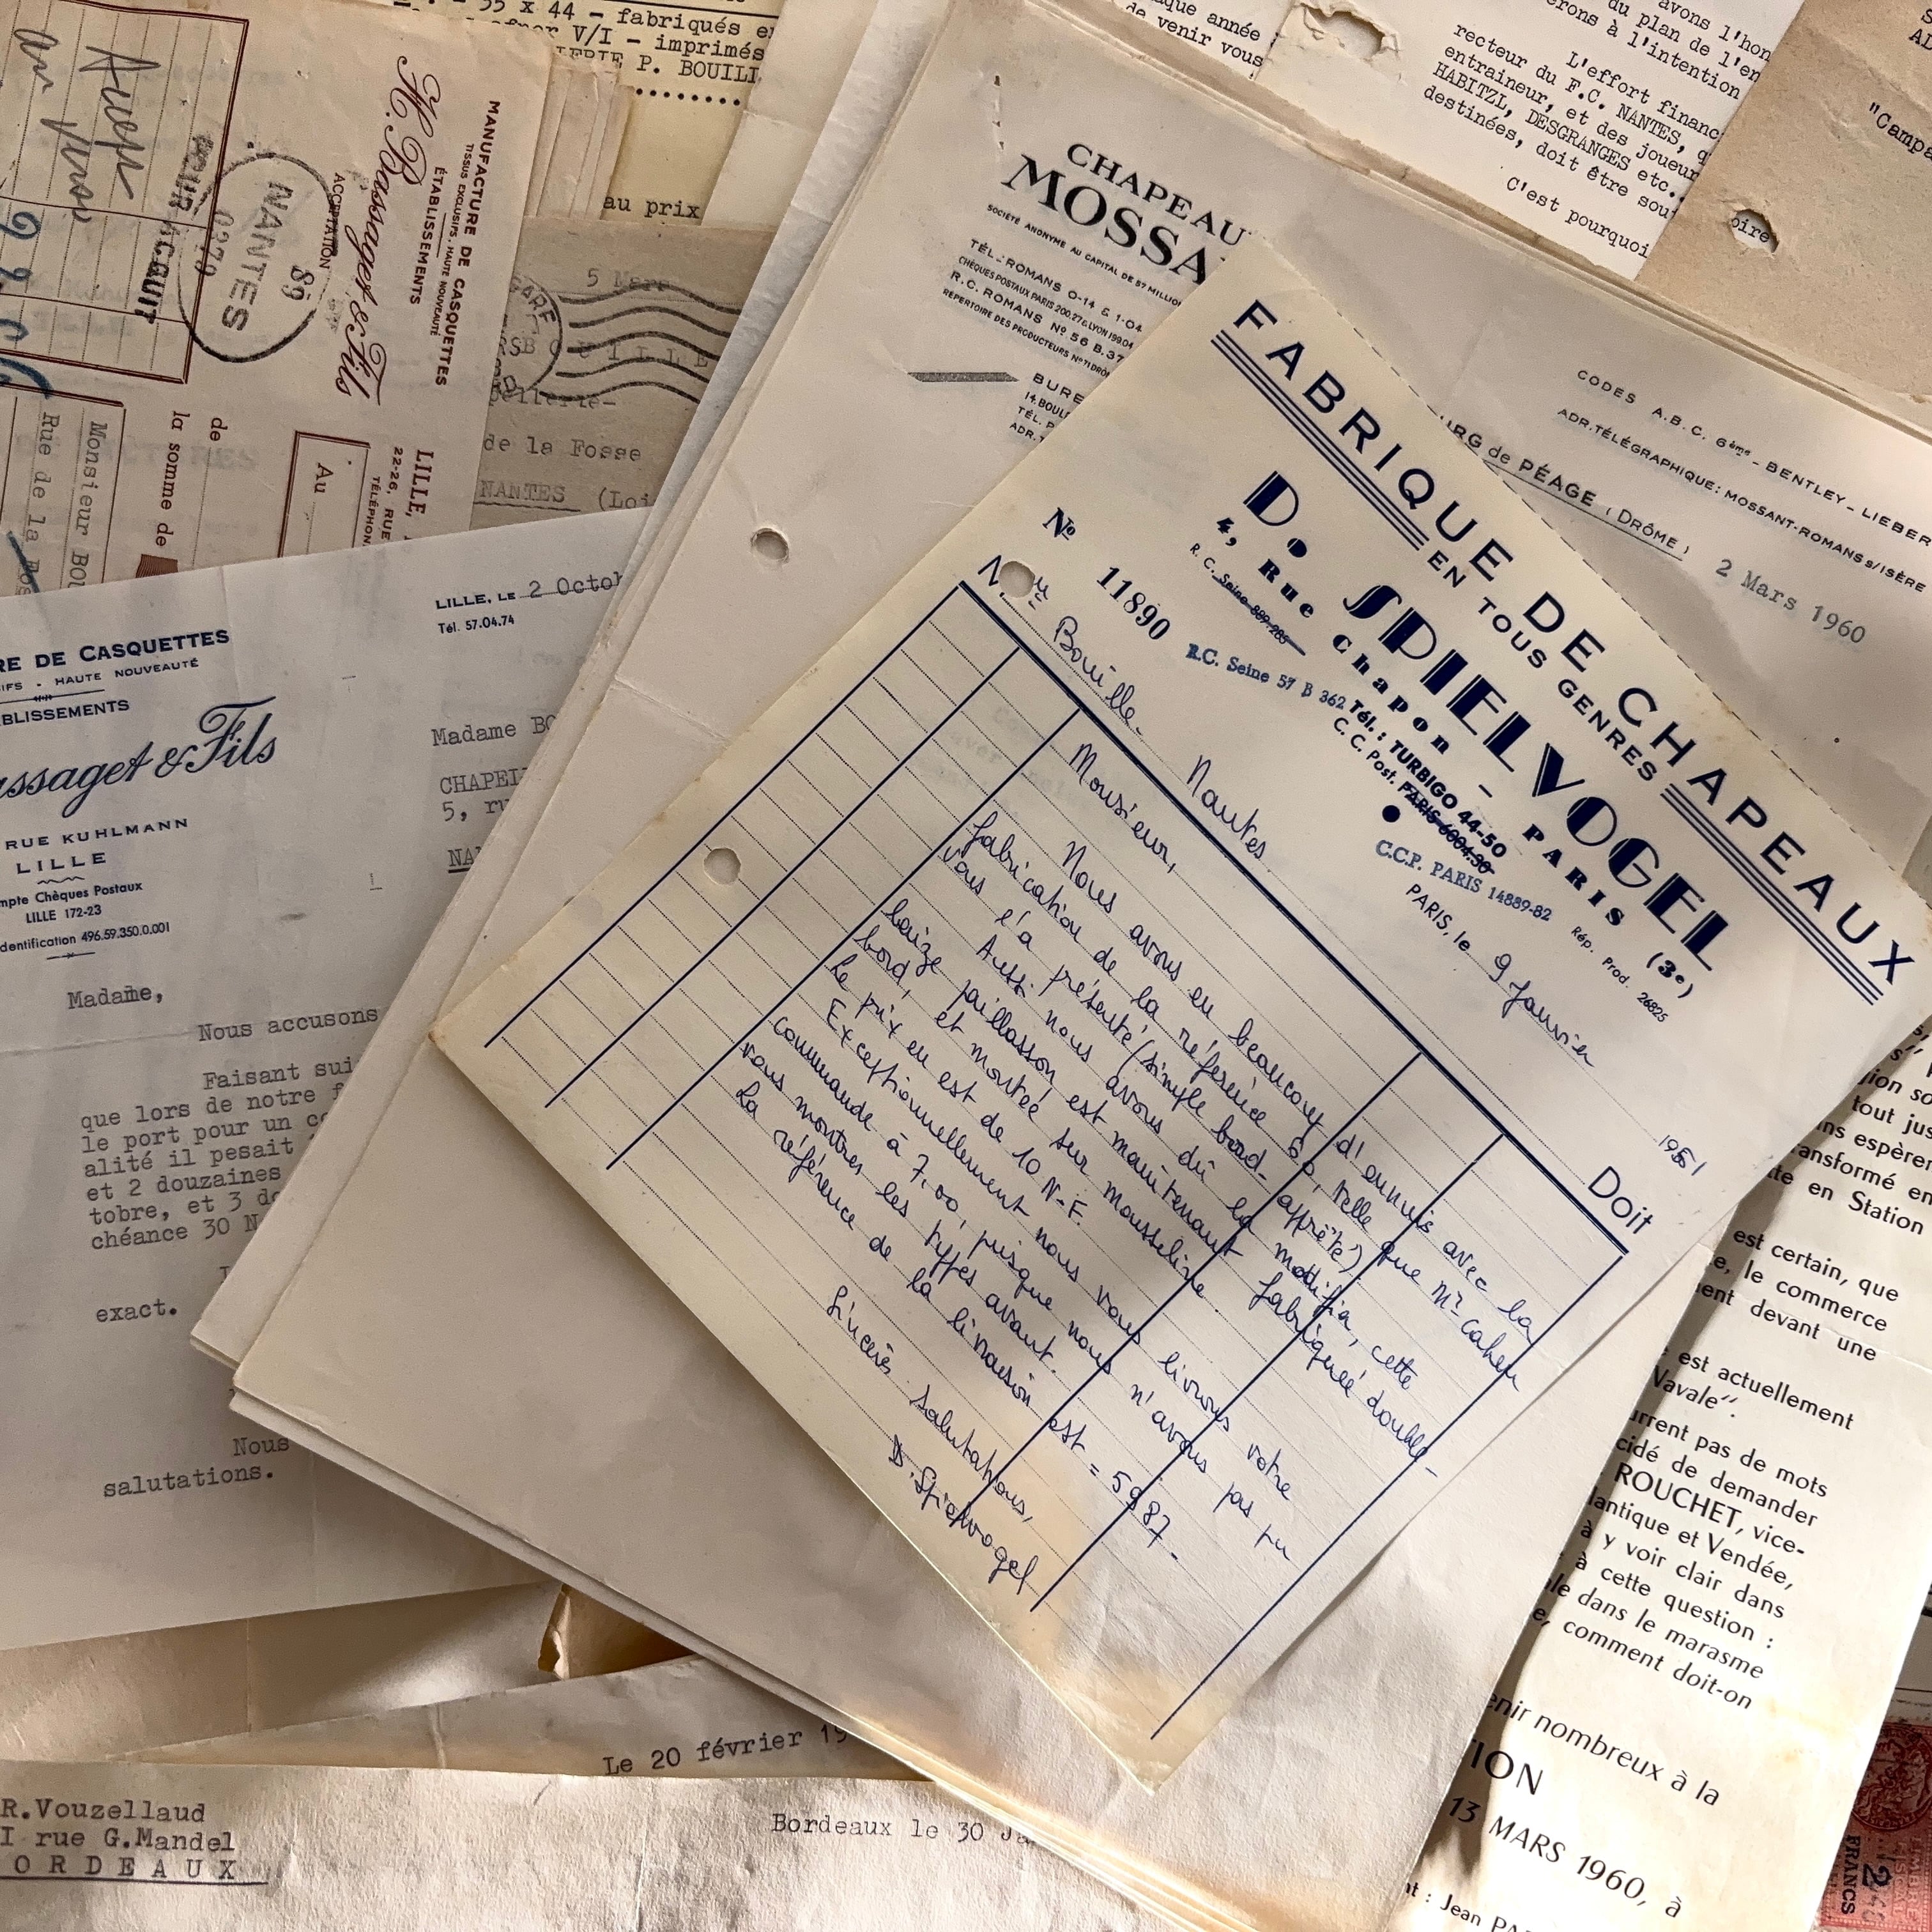 35 x 44 - fabriqués
V/I - imprimés
P. BOUILL
au prix
MANUFACTURE DE CASQUETTES
TISSUS EXCLUSIFS. HAUTE NOUVEAUTÉ
ÉTABLISSEMENTS
H. Bassaget & Fils
ACCEPTATION
LILLE,
22-26, RUE
TÉLÉPHON
NANTES
89
POUR ACQUIT
Au
de
la somme de
Monsieur BOU
Rue de la Fos
5 Mars
GARE
de la Fosse
NANTES (Loi
que année
de venir vous
avons l'hon
du plan de l'en
erons à l'intention
L'effort financ
recteur du F.C. NANTES, q
entraineur, et des joueur
HABITZL, DESGRANGES etc..
destinées, doit être sou
C'est pourquoi
"Campa
oire
CHAPEAU
MOSSA
SOCIÉTÉ ANONYME AU CAPITAL DE 57 MILLION
TÉL. ROMANS 0-14 & 1-04
CHÈQUES POSTAUX PARIS 200.27 & LYON 199.04
R.C. ROMANS Nº 56 B.37
RÉPERTOIRE DES PRODUCTEURS Nº 71 DRÔM
BURE
14, BOUL
TÉL. P
ADR. T
CODES A.B.C. 6ème - BENTLEY - LIEBER
ADR. TÉLÉGRAPHIQUE: MOSSANT-ROMANS s/ISÈRE
URG de PÉAGE (DRÔME)
2 Mars 1960
FABRIQUE DE CHAPEAUX
EN TOUS GENRES
D. SPIELVOGEL
4, Rue Chapon - PARIS (3e)
R. C. Seine 889.285
R.C. Seine 57 B 362 Tél. : TURBIGO 44-50
C. C. Post. PARIS 6004.30 Rép. Prod. 26825
C.C.P. PARIS 14889-82
Nº 11890
PARIS, le 9 Janvier 1961
Bouillé. Nantes. Doit
Monsieur,
Nous avons eu beaucoup d'ennuis avec la
fabrication de la référence telle que Mr Cahen
vous l'a présenté (simple bord-apprêté)
Aussi nous avons dû la modifier, cette
beige paillasson est maintenant fabriqueé double-
bord, et monteé sur mousseline.
Le prix en est de 10 N-F.
Exceptionnellement nous vous livrons votre
commande à 7,00, puisque nous n'avons pas pu
vous montrer les types avant.
La référence de la livraison est = 5987.
Sincères salutations,
D. Spielvogel
RE DE CASQUETTES
IFS - HAUTE NOUVEAUTÉ
BLISSEMENTS
assaget & Fils
RUE KUHLMANN
LILLE
mpte Chèques Postaux
LILLE 172-23
dentification 496.59.350.0.001
LILLE, LE 2 Octob
Tél. 57.04.74
Madame BO
CHAPEL
5, ru
NA
Madame,
Nous accusons
Faisant sui
que lors de notre
le port pour un
alité il pesait
et 2 douzaines
tobre, et 3 do
chéance 30 N
exact.
Nous
salutations.
Le 20 février 19
R.Vouzellaud
I rue G.Mandel
ORDEAUX
Bordeaux le 30 Ja
tout jus
ns espèren
ansformé en
te en Station
est certain, que
e, le commerce
ent devant une
est actuellement
Navale".
urrent pas de mots
cidé de demander
ROUCHET, vice-
lantique et Vendée,
à y voir clair dans
à cette question :
le dans le marasme
e, comment doit-on
enir nombreux à la
ION
13 MARS 1960, à
nt : Jean PA
FRANCS